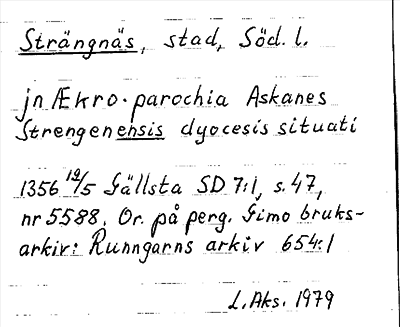 Strängnäs, stad, Söd. l.
jn Ækro. parochia Askanes
Strengenensis dyocesis situati
1356 19/5 Gällsta SD 7:1, s. 47,
nr 5588. Or. på perg. Gimo bruks-
arkiv: Runngarns arkiv 654:1
L. Aks. 1979